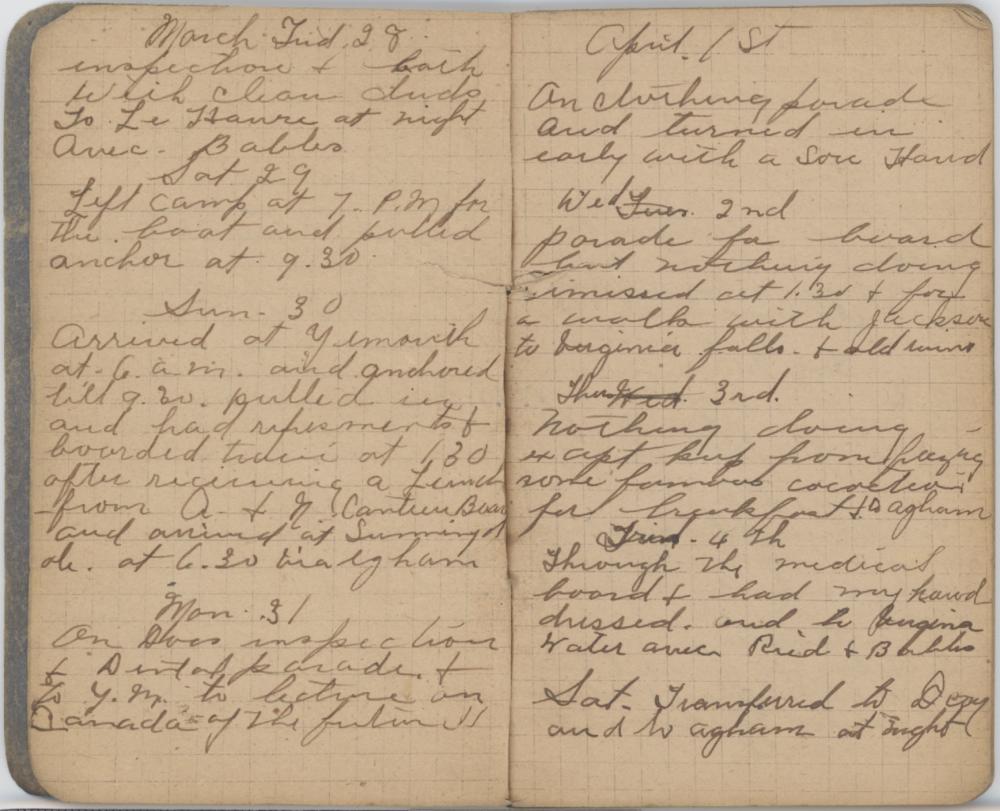 March Frid. 28
inspection & bath
with clean duds
To Le Havre at night
avec - Babbs
Sat 29
Left camp at 7. P.M for
the boat and pulled
anchor at 9.30
Sun - 30
Arrived at Yemouth
at 6. a.m. and anchored
till 9.30. pulled in
and had refresments &
boarded train at 1.30
after receiving a Lunch
from A. & N. Canteen Boar
and arrived at Sunningd
ale. at 6.30 via Egham
Mon. 31
On Docs inspection
& Dental parade. &
to Y.M. to lecture on
Canada of the future
April. 1 St
On clothing parade
and turned in
early with a Sore Hand
Wed Tues. 2nd
parade for board
but nothing doing
imissed at 1.30 & for
a walk with Jackson
to Virginia falls. & old ruins
Thurs Wed. 3rd.
Nothing doing
except kep from
some famous
for breakfast & agham
4 th
Through the medical
board & had my hand
dressed. and to Virgina
Water avec Reid & Babbs
Sat - Transferred to
and to agham at night